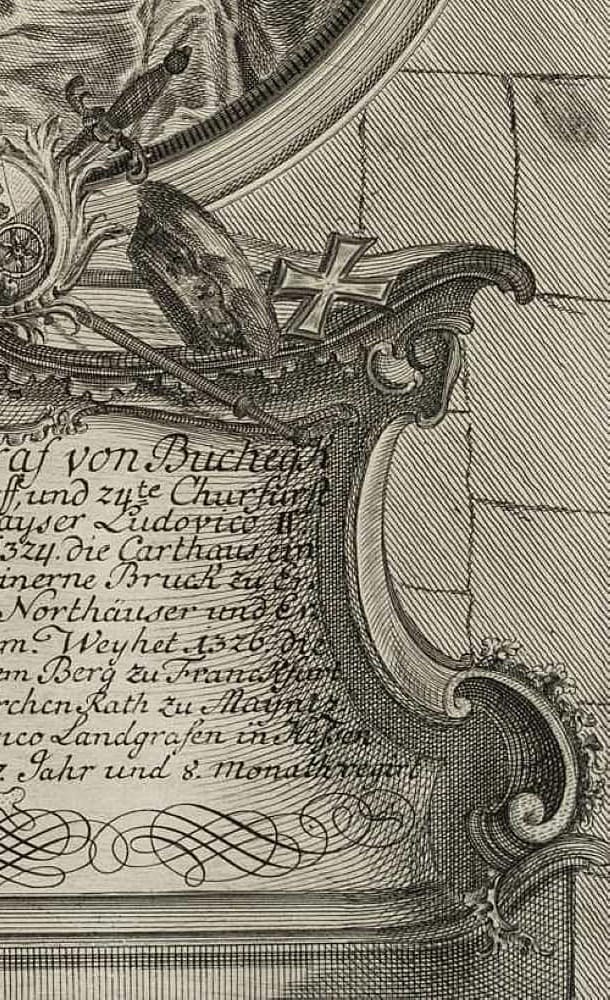 raf von Buchegk
ff, und 24te Churfürst
ayser Ludovico IV
324. die Carthaus ein
inerne Bruck zu Er
Northäuser und Er
m. Weyhet 1326. die
em Berg zu Franckfurt
rchen Rath zu Mayntz
ico Landgrafen in Heßen
7. Jahr und 8. Monath regirt